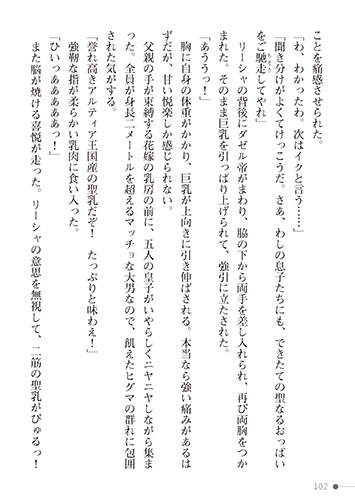 ことを痛感させられた。
「わ、わかったわ。次はイクと言う……」
「聞き分けがよくてけっこうだ。さあ、わしの息子たちにも、できたての聖なるおっぱい
をご馳走してやれ」
リーシャの背後にダゼル帝がまわり、脇の下から両手を差し入れられ、再び両胸をつか
まれた。そのまま巨乳を引っぱり上げられて、強引に立たされた。
「あううっ！」
胸に自身の体重がかかり、巨乳が上向きに引き伸ばされる。本当なら強い痛みがあるは
ずだが、甘い悦楽しか感じられない。
父親の手が束縛する花嫁の乳房の前に、五人の皇子がいやらしくニヤニヤしながら集ま
った。全員が身長二メートルを超えるマッチョな大男なので、飢えたヒグマの群れに包囲
された気がする。
「誉れ高きアルティア王国産の聖乳だぞ！　たっぷりと味わえ！」
強靭な指が柔らかい乳肉に食い入った。
「ひいっぁあああああっ！」
また脳が焼ける喜悦が走った。リーシャの意思を無視して、二筋の聖乳がぴゅるっ！
102